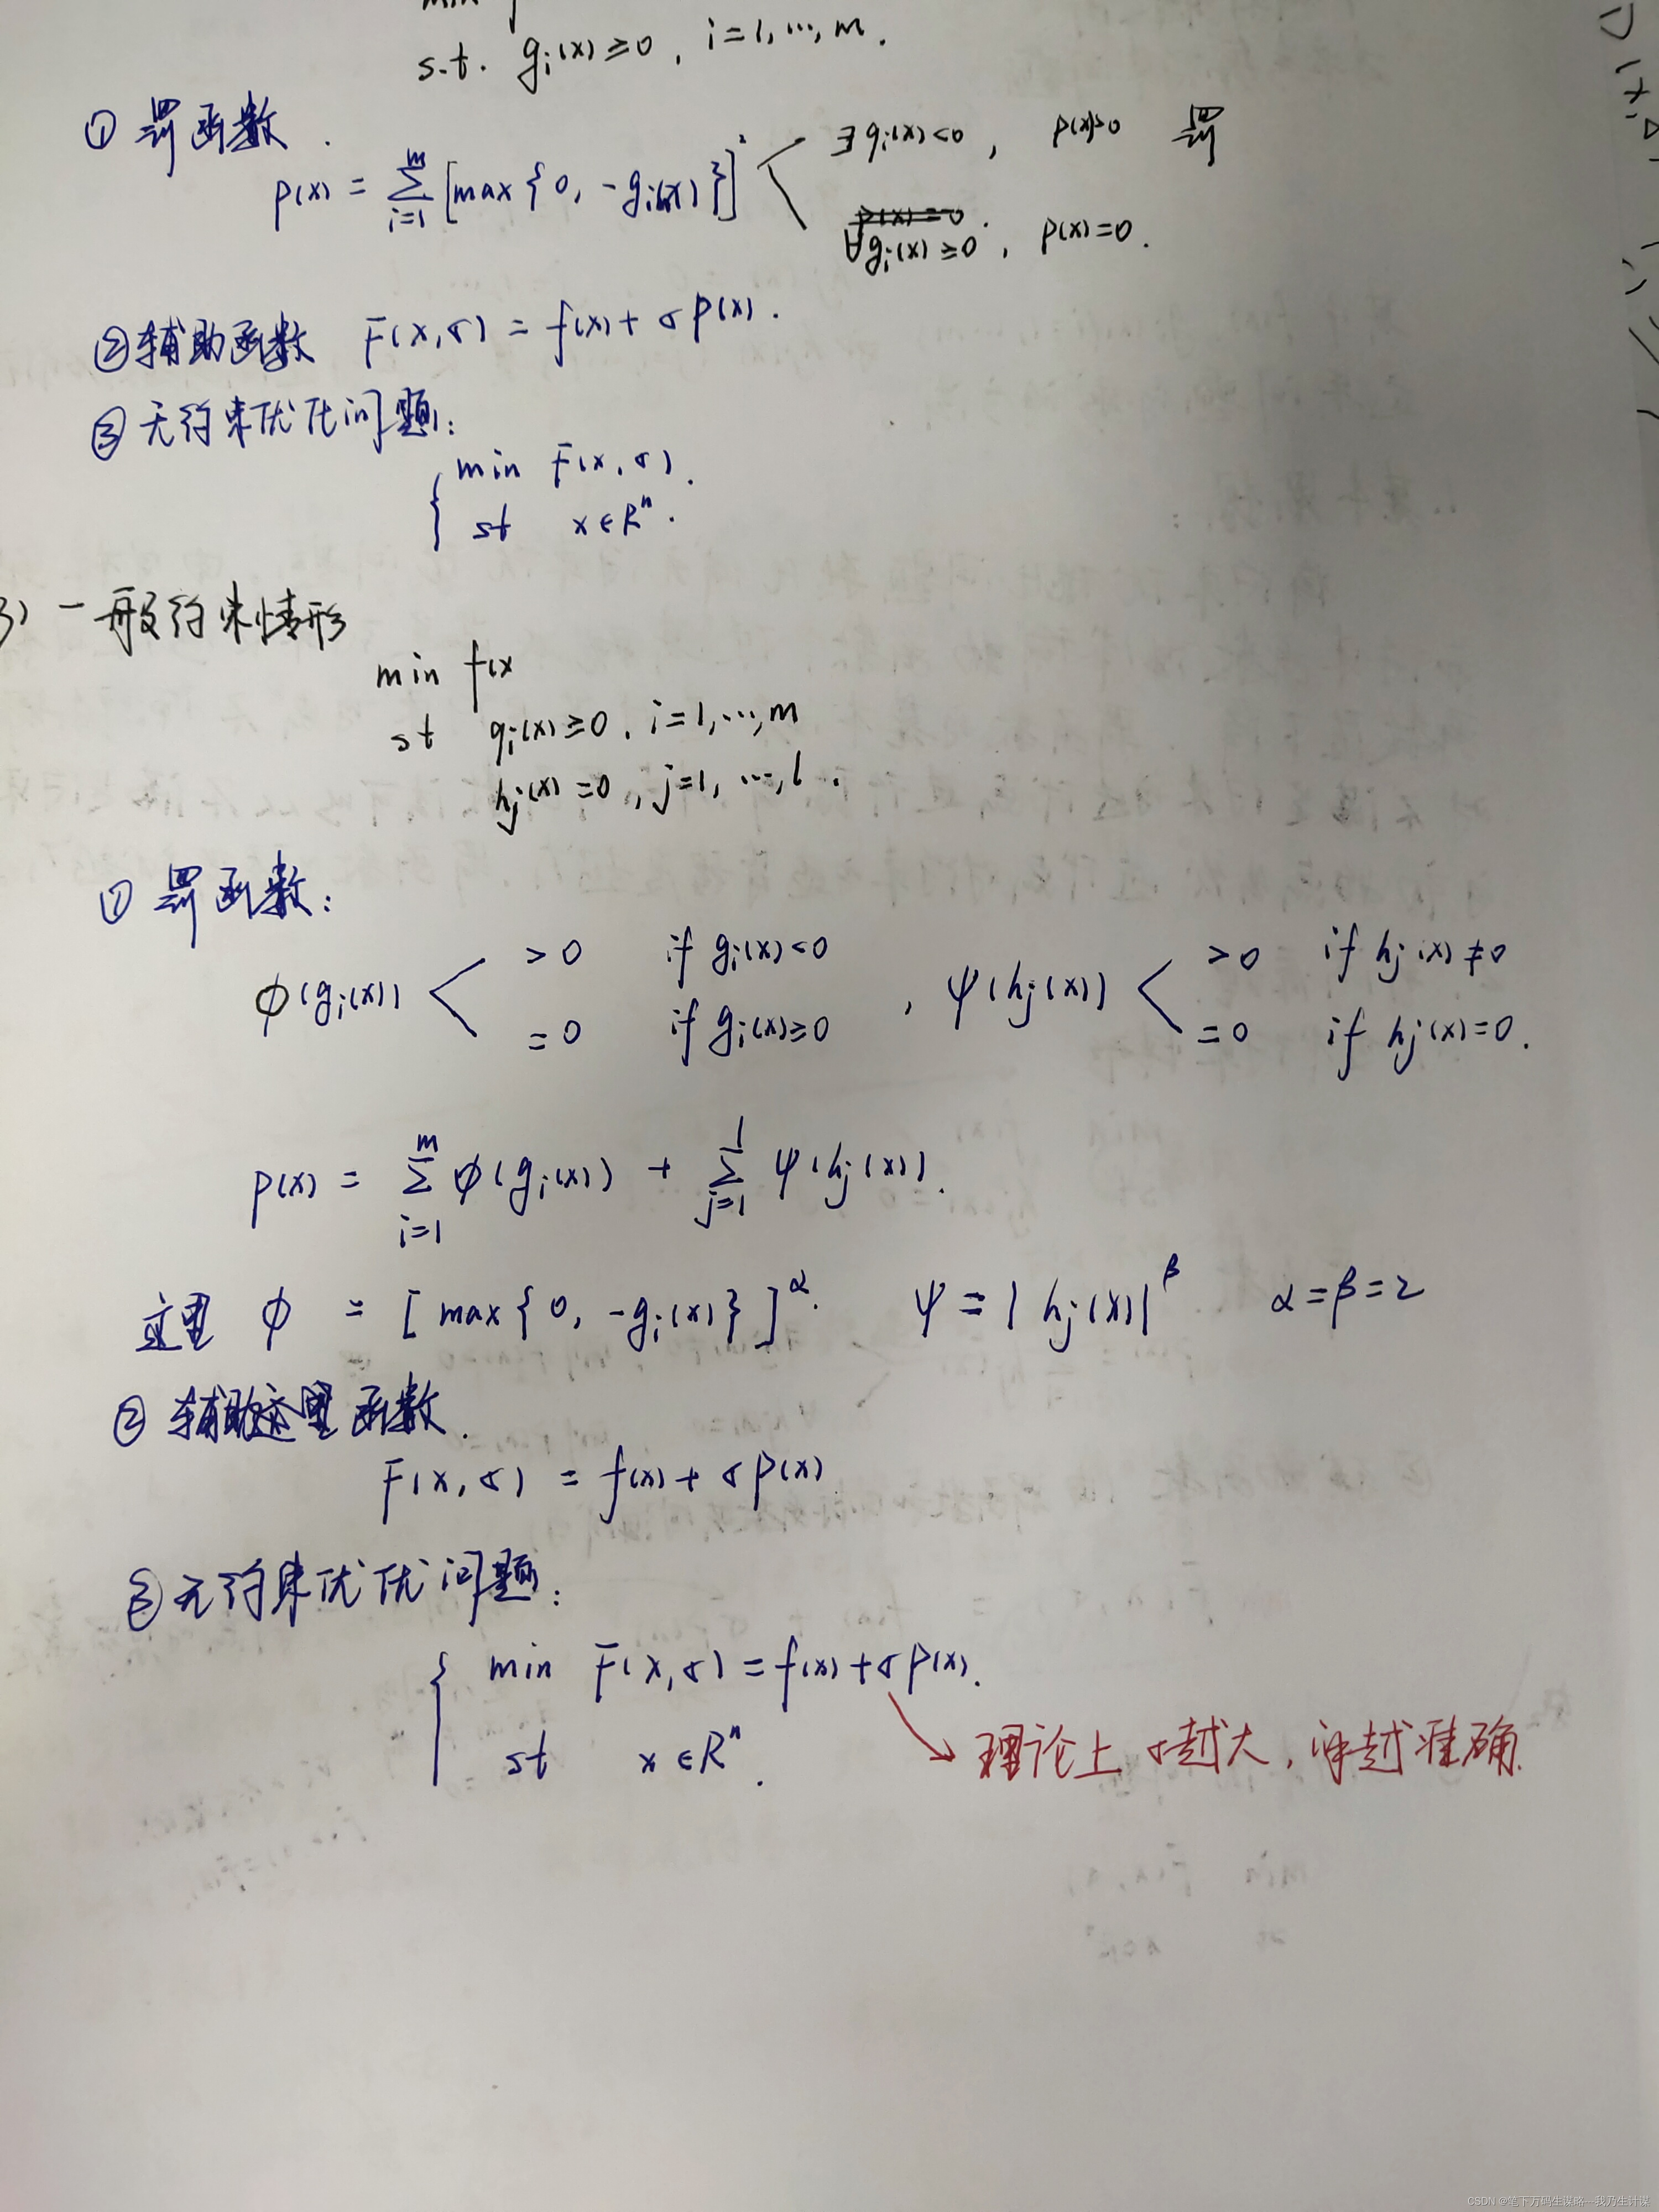 min f
s.t. gᵢ(x)≥0, i=1,…,m.
① 罚函数.
p(x) = Σᵢ₌₁ᵐ [max{0, -gᵢ(x)}]²
∃gᵢ(x)<0, p(x)>0 罚
p(x)=0.
∀gᵢ(x)≥0, p(x)=0.
② 辅助函数 F(x,σ) = f(x)+σp(x).
③ 无约束优化问题:
min F(x,σ).
st x∈Rⁿ.
3) 一般约束情形
min f(x
st gᵢ(x)≥0, i=1,…,m
hⱼ(x)=0, j=1,…,l.
① 罚函数:
ϕ(gᵢ(x)) >0 if gᵢ(x)<0 , ψ(hⱼ(x)) >0 if hⱼ(x)≠0
=0 if gᵢ(x)≥0 =0 if hⱼ(x)=0.
p(x) = Σᵢ₌₁ᵐ ϕ(gᵢ(x)) + Σⱼ₌₁ˡ ψ(hⱼ(x)).
这里 ϕ = [max{0, -gᵢ(x)}]^α. ψ=|hⱼ(x)|^β α=β=2
② 辅助这里函数.
F(x,σ) = f(x)+σp(x)
③ 无约束优优问题:
min F(x,σ)=f(x)+σp(x).
st x∈Rⁿ.
理论上σ越大,解越准确.
CSDN @笔下万码生谋略—我乃生计谋